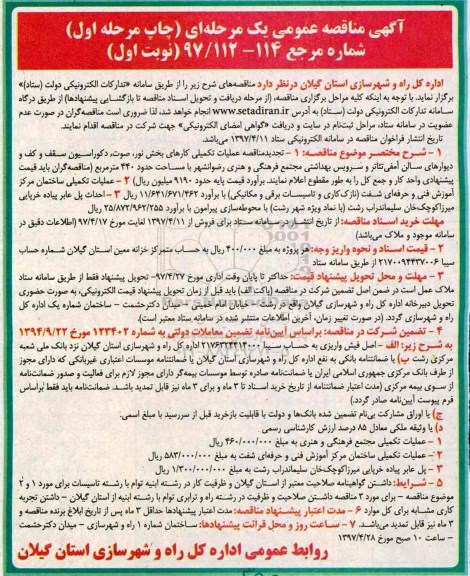 آگهی مناقصه عمومی یک مرحله‌ای (چاپ مرحله اول)
شماره مرجع ۱۱۴- ۹۷/۱۱۲ (نوبت اول)
اداره کل راه و شهرسازی استان گیلان درنظر دارد مناقصه‌های شرح زیر را از طریق سامانه «تدارکات الکترونیکی دولت (ستاد)»
برگزار نماید. با توجه به اینکه کلیه مراحل برگزاری مناقصه، (از مرحله دریافت و تحویل اسناد مناقصه تا بازگشایی پیشنهادها) از طریق درگاه
سامانه تدارکات الکترونیکی دولت (ستاد) به آدرس www.setadiran.ir انجام خواهد شد، لذا ضروری است مناقصه‌گران در صورت عدم
عضویت در سامانه ستاد، مراحل ثبت‌نام در سایت و دریافت «گواهی امضای الکترونیکی» جهت شرکت در مناقصه اقدام نمایند.
تاریخ انتشار فراخوان مناقصه در سامانه الکترونیکی ستاد ۱۳۹۷/۴/۱۱ می‌باشد.
۱ - شرح مختصر موضوع مناقصه: ۱ - تجدیدمناقصه عملیات تکمیلی کارهای بخش نور، صوت، دکوراسیون سقف و کف و
دیوارهای سالن آمفی‌تئاتر و سرویس بهداشتی مجتمع فرهنگی و هنری رضوانشهر با مساحت حدود ۴۴۰ مترمربع (مناقصه‌گران باید قیمت
پیشنهادی واحد کار و جمع کل را به طور مقطوع اعلام نمایند. برآورد قیمت پایه حدود ۹۱۹۰ میلیون ریال) ۲ - عملیات تکمیلی ساختمان مرکز
آموزش فنی و حرفه‌ای شفت (نازک‌کاری و تاسیسات برقی و مکانیکی) با برآورد ۱۱/۶۴۱/۶۷۱/۴۶۲ ریال ۳ - احداث پل عابر پیاده خرپایی
میرزاکوچک‌خان سلیماندراب رشت (با نماد ویژه شهر رشت) با محوطه‌سازی پیرامون با برآورد ۲۵/۸۷۲/۹۶۲/۲۵۵ ریال
مهلت خرید اسناد مناقصه: از تاریخ انتشار در سامانه ستاد برای فروش از ۹۷/۴/۱۱ لغایت مورخ ۹۷/۴/۱۷ (اطلاعات دقیق در
سامانه موجود و ملاک می‌باشد)
۲ - قیمت اسناد و نحوه واریز وجه: هر پروژه به مبلغ ۴۰۰/۰۰۰ ریال به حساب متمرکز خزانه معین استان گیلان شماره حساب
سیبا ۲۱۷۰۰۹۴۴۳۷۰۰۶ از طریق سامانه ستاد
۳ - مهلت و محل تحویل پیشنهاد قیمت: حداکثر تا پایان وقت اداری مورخ ۹۷/۴/۲۷- تحویل پیشنهاد فقط از طریق سامانه ستاد
ملاک عمل است در ضمن اصل تضمین شرکت در مناقصه (پاکت الف) باید قبل از زمان تحویل پیشنهاد قیمت الکترونیکی، به صورت حضوری
تحویل دبیرخانه اداره کل راه و شهرسازی گیلان واقع در رشت - خیابان امام خمینی - میدان دکترحشمت - ساختمان شماره یک اداره کل
راه و شهرسازی گردد. (در صورت تغییر زمان، آخرین اطلاعات منتشر شده در سامانه ستاد معتبر است).
۴ - تضمین شرکت در مناقصه: براساس آیین‌نامه تضمین معاملات دولتی به شماره ۱۲۳۴۰۲ مورخ ۱۳۹۴/۹/۲۲
به شرح زیر: الف - اصل فیش واریزی به حساب سیبا ۲۱۷۶۳۳۴۲۱۴۰۰۰ اداره کل راه و شهرسازی استان گیلان نزد بانک ملی شعبه
مرکزی رشت ب) یا ضمانتنامه بانکی به نفع اداره کل راه و شهرسازی استان گیلان یا ضمانتنامه موسسات اعتباری غیربانکی که دارای مجوز
از طرف بانک مرکزی جمهوری اسلامی ایران یا ضمانت‌نامه صادره توسط موسسات بیمه‌گر دارای مجوز لازم برای فعالیت و صدور ضمانت‌نامه
از سوی بیمه مرکزی (مدت اعتبار ضمانتنامه از تاریخ خرید اسناد تا ۳ ماه و برای ۳ ماه نیز قابل تمدید باشد. ضمانت‌نامه باید فقط براساس
فرم پیوست آیین‌نامه آورده شود).
ج) یا اوراق مشارکت بی‌نام تضمین شده بانک‌ها و دولت با قابلیت بازخرید قبل از سررسید با مبلغ اسمی.
د) یا وثیقه ملکی معادل ۸۵ درصد ارزش کارشناسی رسمی
۱ - عملیات تکمیلی مجتمع فرهنگی و هنری به مبلغ ۴۶۰/۰۰۰/۰۰۰ ریال
۲ - عملیات تکمیلی ساختمان مرکز آموزش فنی و حرفه‌ای شفت به مبلغ ۵۸۳/۰۰۰/۰۰۰ ریال
۳ - پل عابر پیاده خرپایی میرزاکوچک‌خان سلیماندراب رشت به مبلغ ۱/۳۰۰/۰۰۰/۰۰۰ ریال
۵ - شرایط: داشتن گواهینامه صلاحیت معتبر از استان گیلان و ظرفیت کار در رشته ابنیه توام با رشته تاسیسات برای مورد ۱ و ۲
موضوع مناقصه - برای مورد ۳ مناقصه داشتن صلاحیت و ظرفیت در رشته راه و ترابری توام با رشته ابنیه از استان گیلان - داشتن تجربه
کاری مشابه برای کل موارد ۶ - مدت اعتبار پیشنهاد مناقصه: مدت اعتبار پیشنهادها حداقل ۳ ماه پس از تاریخ ابلاغ برنده مناقصه و
۳ ماه نیز قابل تمدید می‌باشد. ۷ - ساعت روز و محل قرائت پیشنهادها: ساختمان شماره ۱ راه و شهرسازی - میدان دکترحشمت
- ساعت ۱۰ صبح مورخ ۱۳۹۷/۴/۲۸
روابط عمومی اداره کل راه و شهرسازی استان گیلان